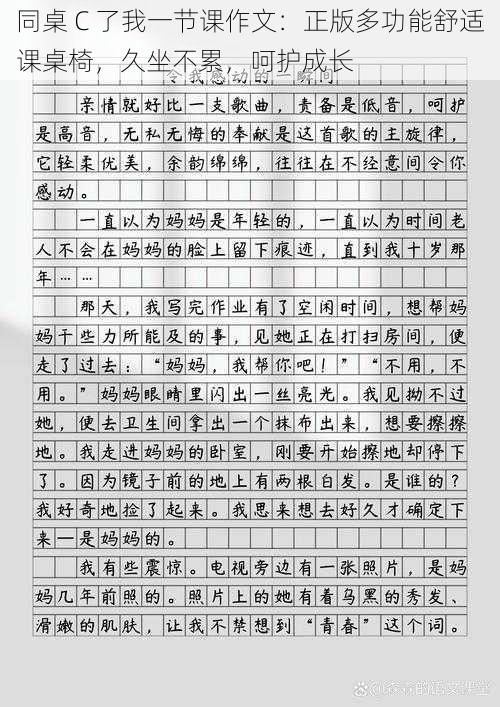 同桌 C 了我一节课作文：正版多功能舒适
课桌椅，久坐不累，呵护成长
令我感动的一瞬间
亲情就好比一支歌曲，责备是低音，呵护
是高音，无私无悔的奉献是这首歌的主旋律，
它轻柔优美，余韵绵绵，往往在不经意间令你
感动。
一直以为妈妈是年轻的，一直以为时间老
人不会在妈妈的脸上留下痕迹，直到我十岁那
年……
那天，我写完作业有了空闲时间，想帮妈
妈干些力所能及的事，见她正在打扫房间，便
走了过去：“妈妈，我帮你吧！”“不用，不
用。”妈妈眼睛里闪出一丝亮光。我见拗不过
她，便去卫生间拿出一个抹布出来，想要擦擦
地。我走进妈妈的卧室，刚要开始擦地却停下
了。因为镜子前的地上有两根白发。是谁的？
我好奇地捡了起来。我思来想去好久才确定下
来—是妈妈的。
我有些震惊。电视旁边有一张照片，是妈
妈几年前照的。照片上的她有着乌黑的秀发、
滑嫩的肌肤，让我不禁想到“青春”这个词。